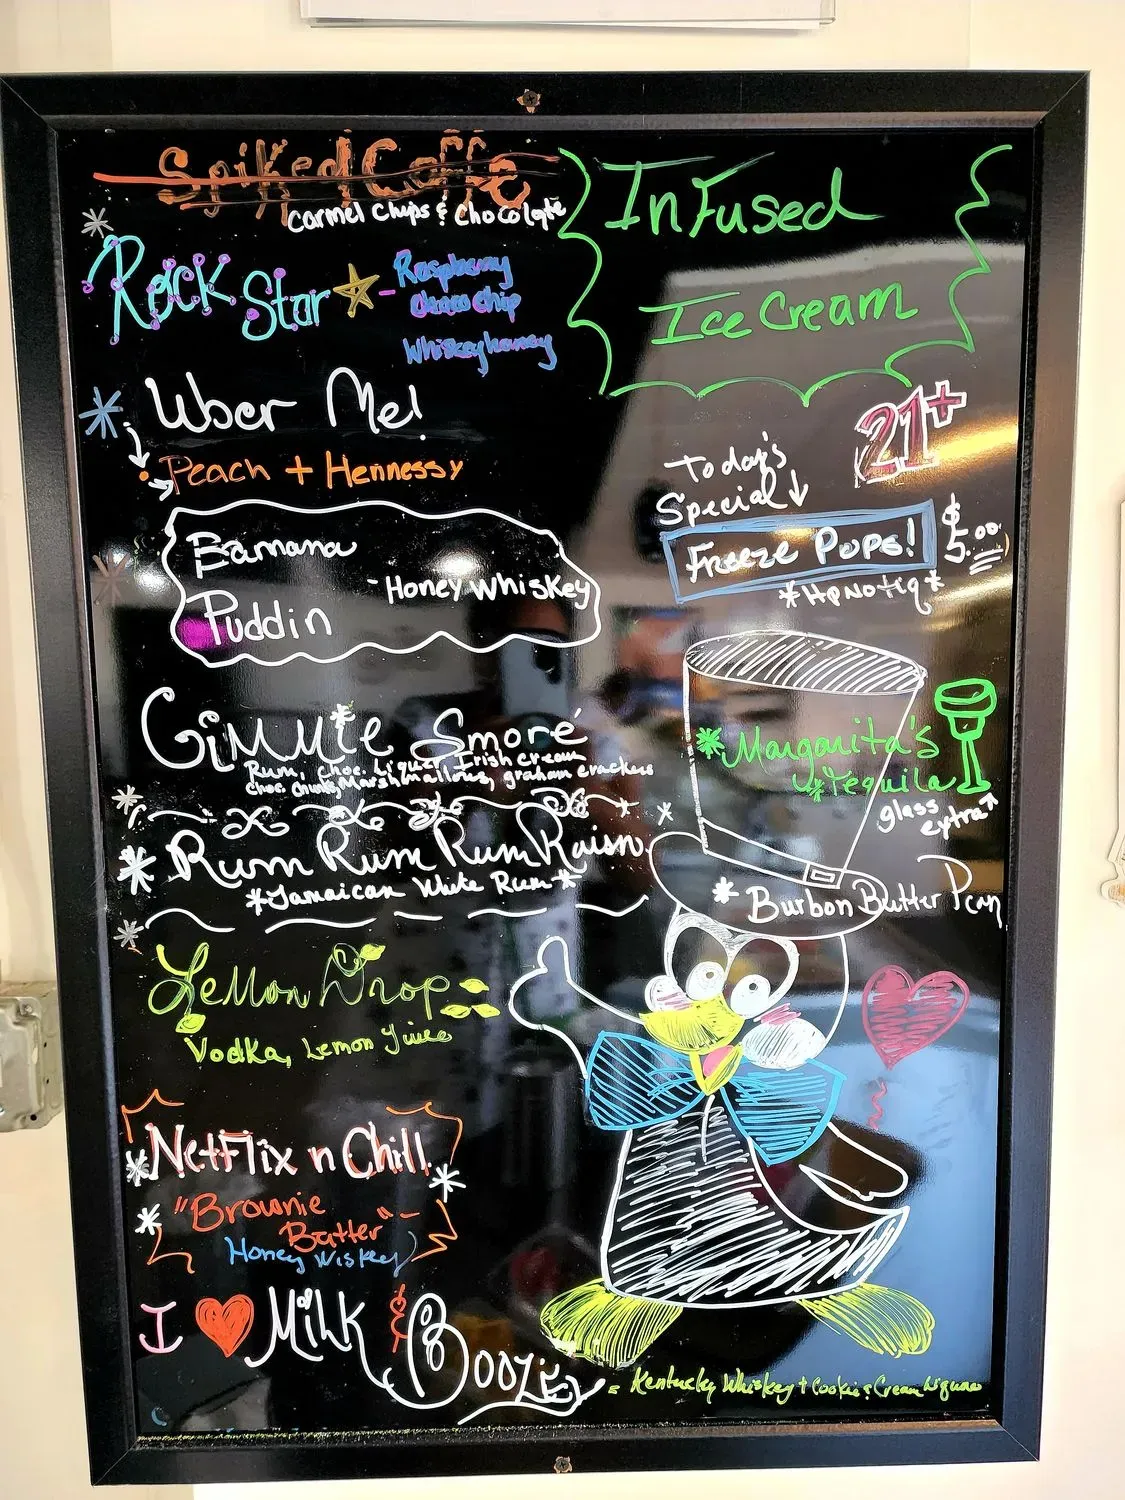 Spiked Coffe
Carmel Chips & Chocolate
Rock Star -
Raspberry
Choco Chip
Whiskey honey
Uber Me!
Peach + Hennessy
Banana
Puddin
- Honey Whiskey
Gimmie Smoré
Rum, choc. Liquer Irish cream
choc chunks, Marshmallows, graham crackers
Rum Rum Rum Raisn
*Jamaican White Rum*
Lemon Drop
Vodka, Lemon Juice
Netflix n Chill
"Brownie
Batter" -
Honey Wiskey
I ♥ Milk & Boozie
= Kentucky Whiskey + Cookie & Cream Liquor
InFused
Ice Cream
21+
Today's
Special
Freeze Pops!
$5.00
*HpNotiq*
*Margarita's
*Tequila
glass
extra
* Burbon Butter Pcan